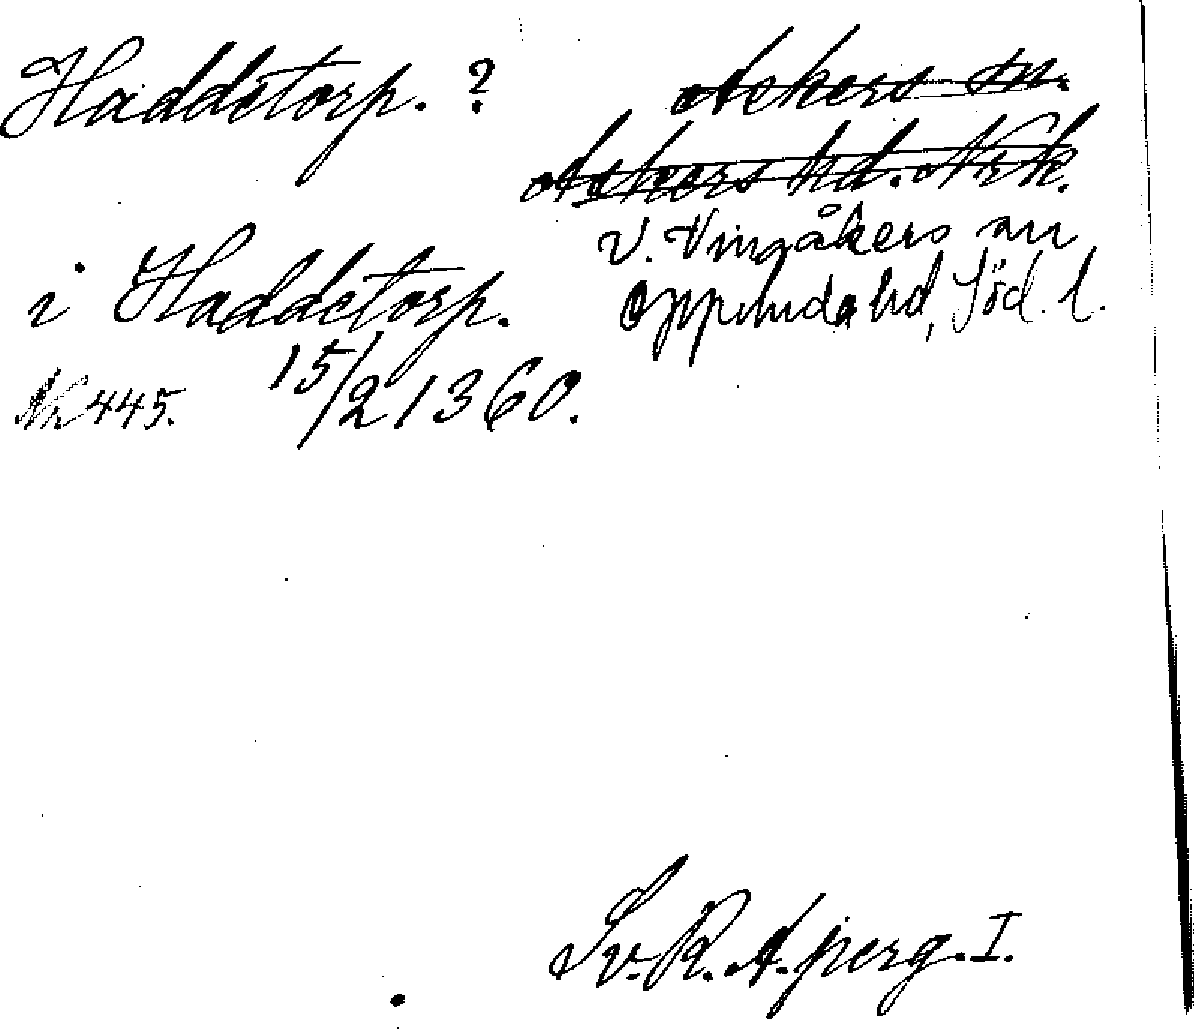 Haddetorp. ?
Askers sn.
Askers hd. Nrk.
V. Vingåkers sn
Oppunda hd, Söd. l.
i Haddetorp.
15/2 1360.
Nr 445.
Sv. R. A. perg. I.